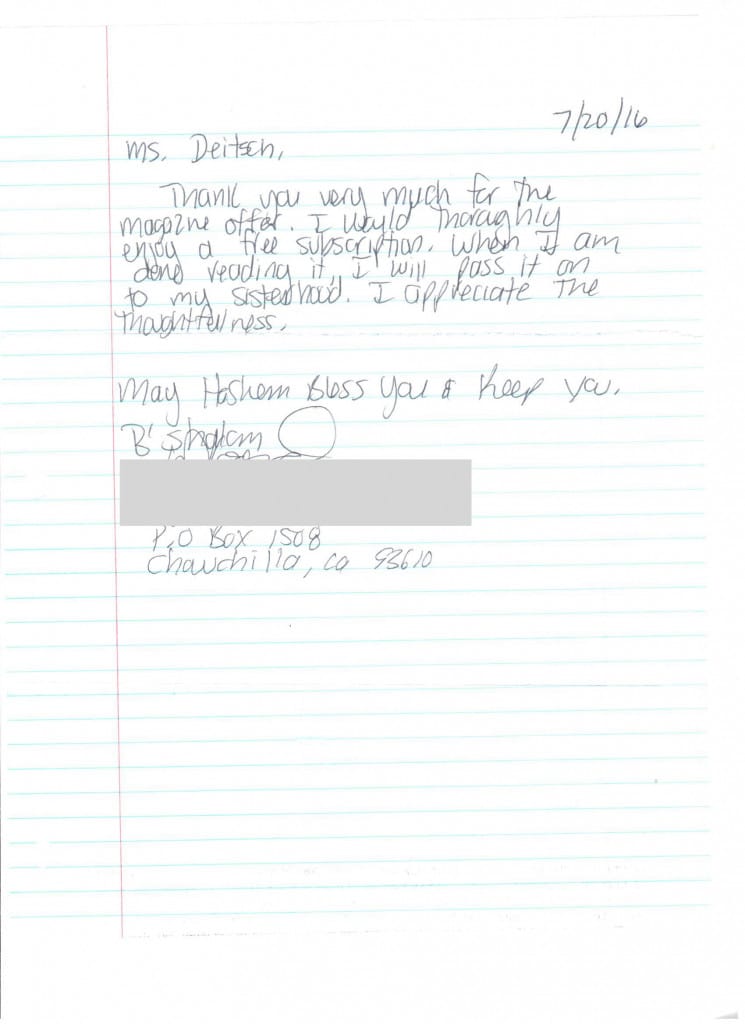 7/20/16
Ms. Deitsch,
Thank you very much for the
magazine offer. I would thoroughly
enjoy a free subscription. When I am
done reading it, I will pass it on
to my sisterhood. I appreciate the
thoughtfullness.
May Hashem Bless you & Keep you.
B'
P.O Box 1508
Chowchilla, ca 93610